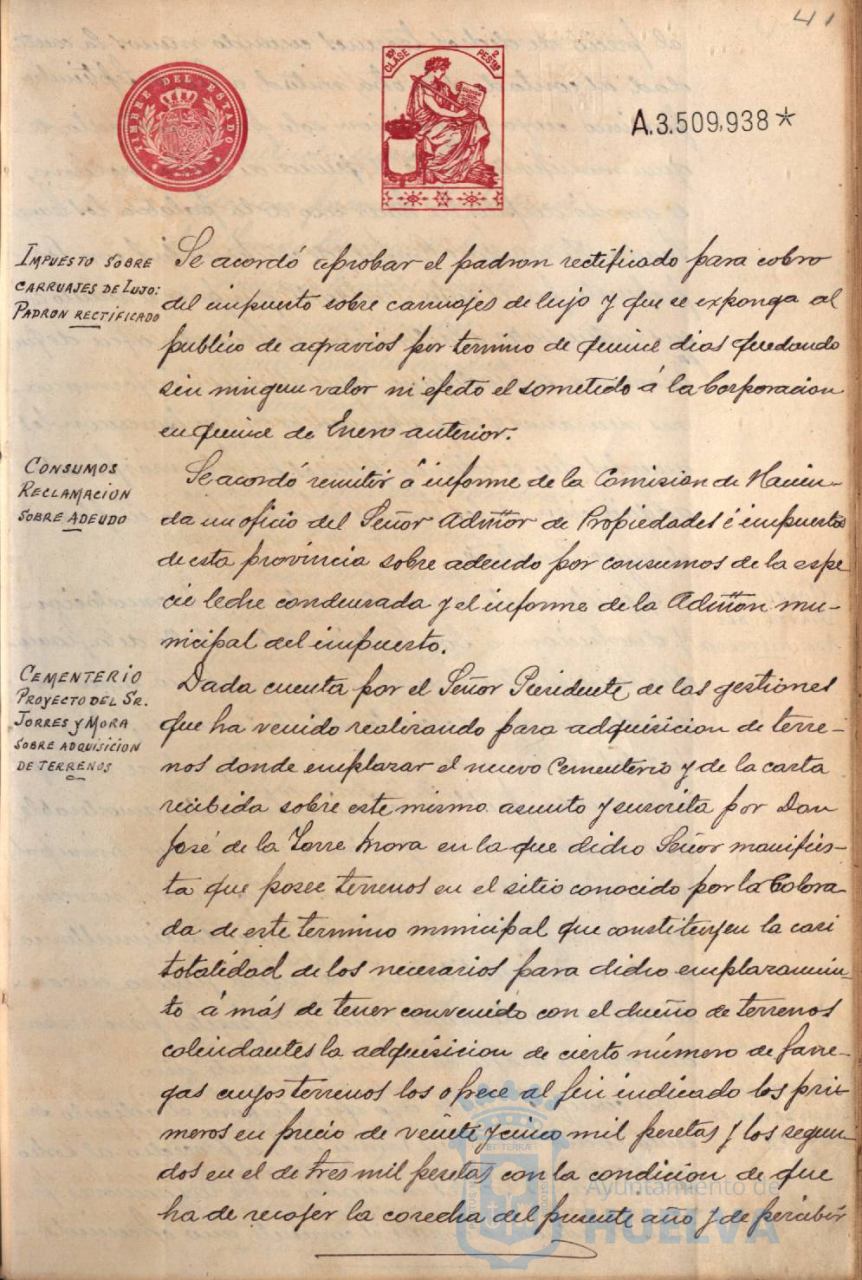 41
TIMBRE DEL ESTADO
10ª CLASE
2 PESTAS
A.3.509,938*
IMPUESTO SOBRE
CARRUAJES DE LUJO:
PADRON RECTIFICADO
Se acordó aprobar el padron rectificado para cobro
del impuesto sobre carruajes de lujo y que se exponga al
publico de agravios por termino de quince dias quedando
sin ningun valor ni efecto el sometido á la Corporacion
en quince de Enero anterior.
CONSUMOS
RECLAMACION
SOBRE ADEUDO
Se acordó remitir á informe de la Comision de Hacien-
da un oficio del Señor Admtor de Propiedades é impuestos
de esta provincia sobre adeudo por consumos de la espe
cie leche condensada y el informe de la Admton mu-
nicipal del impuesto.
CEMENTERIO
PROYECTO DEL SR.
TORRES Y MORA
SOBRE ADQUISICION
DE TERRENOS
Dada cuenta por el Señor Presidente de las gestiones
que ha venido realizando para adquisicion de terre-
nos donde emplazar el nuevo Cementerio y de la carta
recibida sobre este mismo asunto y suscrita por Don
José de la Torre Mora en la que dicho Señor manifies-
ta que posee terrenos en el sitio conocido por la Colora-
da de este termino municipal que constituyen la casi
totalidad de los necesarios para dicho emplazamien-
to á más de tener convenido con el dueño de terrenos
colindantes la adquisicion de cierto número de fane-
gas cuyos terrenos los ofrece al fin indicado los pri-
meros en precio de veinte y cinco mil pesetas y los segun-
dos en el de tres mil pesetas con la condicion de que
ha de recojer la cosecha del presente año y de percibir
Ayuntamiento de
HUELVA